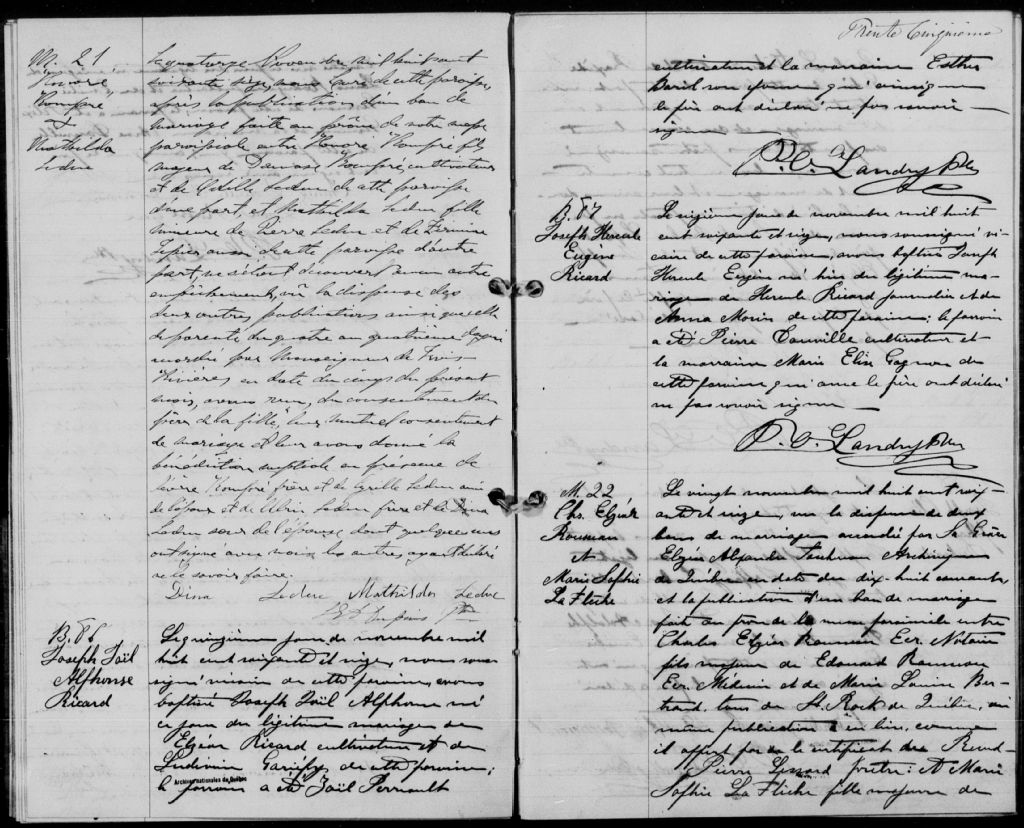 M. 21
Honoré
Pomfré
&
Mathilda
Leduc
Le quatorze Novembre mil huit cent
soixante seize, nous curé de cette paroisse,
après la publication d'un ban de
mariage faite au prône de notre messe
paroissiale entre Honoré Pomfré fils
majeur de Pomfré cultivateur
et de Leduc de cette paroisse
d'une part, et Mathilda Leduc fille
mineure de Pierre Leduc et de
aussi de cette paroisse d'autre
part, ne s'étant découvert aucun autre
empêchement, vu la dispense des
deux autres publications ainsi que celle
de parenté du quatre au quatrième degré
accordée par Monseigneur des Trois-
Rivières en date du cinq du présent
mois, avons reçu, du consentement du
père de la fille, leur mutuel consentement
de mariage et leur avons donné la
bénédiction nuptiale en présence de
Pomfré frère et de Leduc ami
de l'époux et de Leduc frère et de Dina
Leduc sœur de l'épouse dont quelques uns
ont signé avec nous, les autres ayant déclaré
ne le savoir faire.
Dina Leclerc Mathilda Leduc
Ptre
B. 86
Joseph Joël
Alphonse
Ricard
Le quinzième jour de novembre mil
huit cent soixante et seize, nous sous-
signé vicaire de cette paroisse, avons
baptisé Joseph Joël Alphonse né
ce jour du légitime mariage de
Elzéar Ricard cultivateur et de
Ludivine de cette paroisse;
Archives nationales du Québec
le parrain a été Joël Perreault
Trente Cinquième
cultivateur et la marraine Esther
Baril son épouse qui ainsi que
le père ont déclaré ne pas savoir
signer
P. C. Landry Ptre
B. 87
Joseph Hercule
Eugène
Ricard
Le seizième jour de novembre mil huit
cent soixante et seize, nous soussigné vi-
caire de cette paroisse, avons baptisé Joseph
Hercule Eugène né hier du légitime ma-
riage de Hercule Ricard journalier et de
Anna Morin de cette paroisse; le parrain
a été Pierre Conville cultivateur et
la marraine Marie Elise Gagnon de
cette paroisse qui avec le père ont déclaré
ne pas savoir signer
P. C. Landry Ptre
M. 22
Chs. Elzéar
Rousseau
et
Marie Sophie
La Flèche
Le vingt novembre mil huit cent soix-
ante et seize, vu la dispense de deux
bans de mariage accordée par Sa Grâce
Elzéar Alexandre Taschereau Archevêque
de Québec en date du dix-huit courant
et la publication d'un ban de mariage
faite au prône de la messe paroissiale entre
Charles Elzéar Rousseau Ecr. Notaire
fils majeur de Edouard Rousseau
Ecr. Médecin et de Marie Louise Ber-
trand, tous de St. Roch de Québec, où
même publication a eu lieu, comme
il appert par le certificat du Révend.
Pierre prêtre: et Marie
Sophie La Flèche fille majeure de